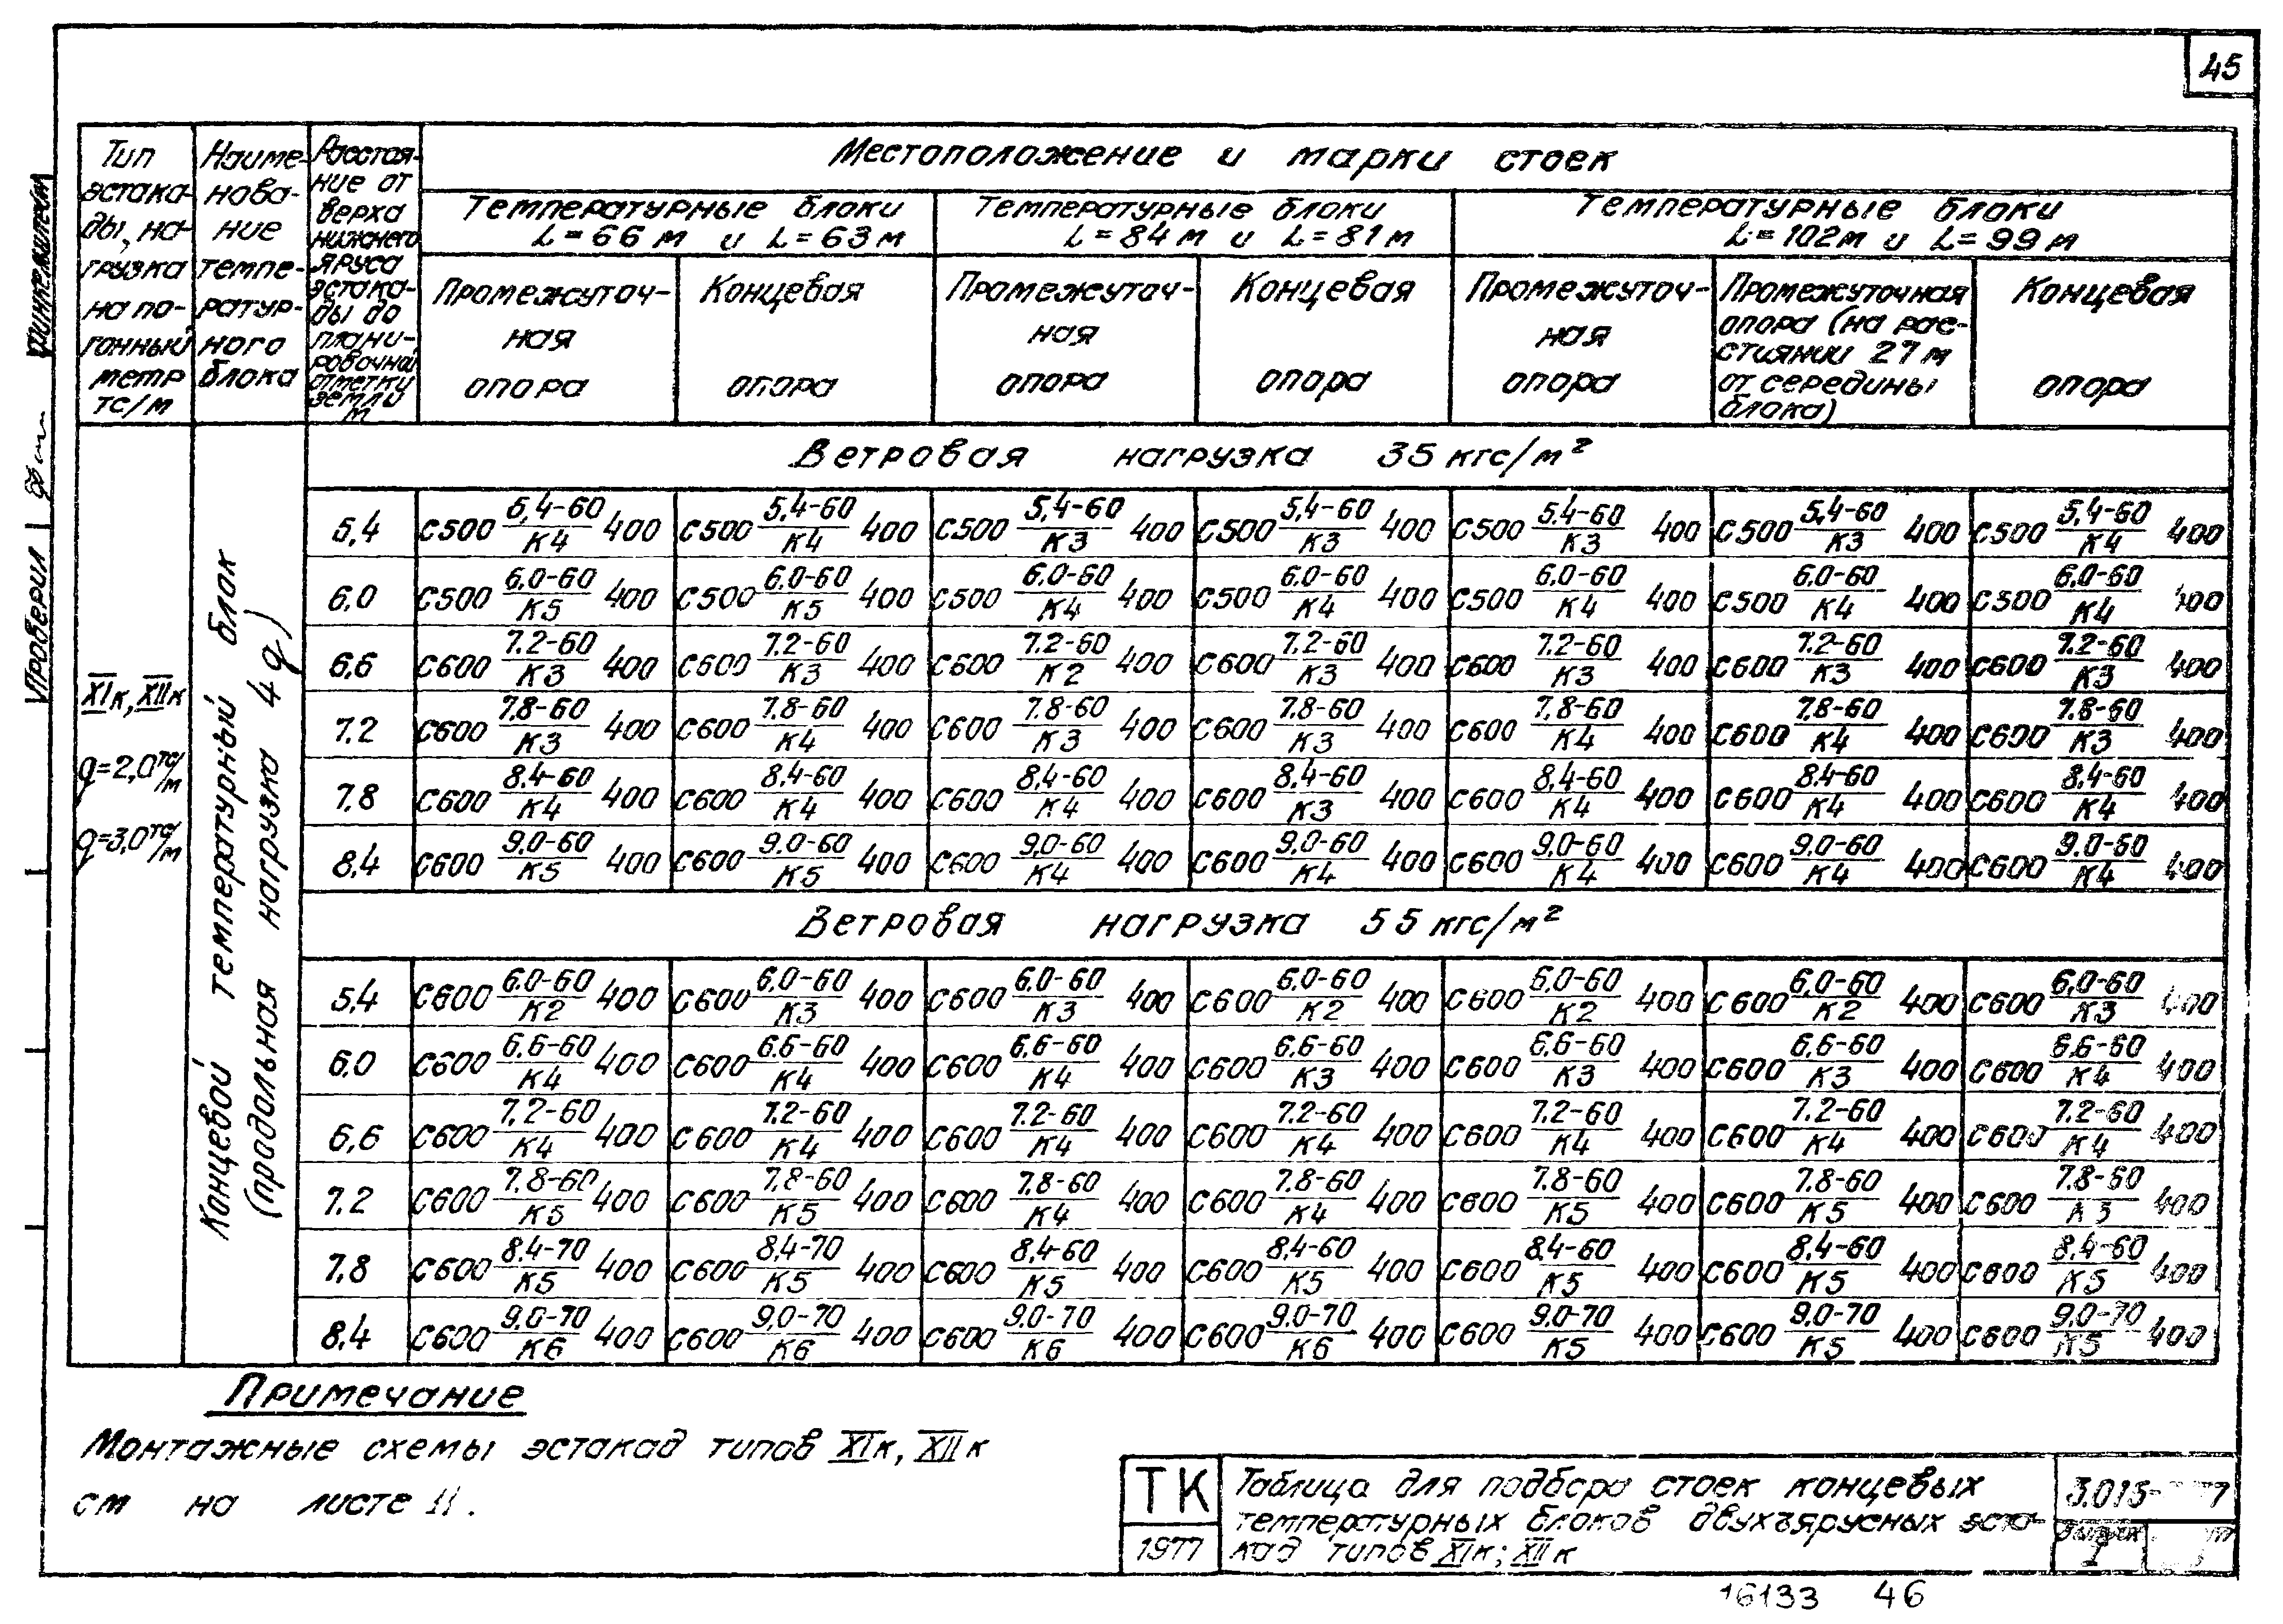 45
Тип эстакады, нагрузка на погонный метр тс/м
Наименование температурного блока
Расстояние от верха нижнего яруса эстакады до планировочной отметки земли м
Местоположение и марки стоек
Температурные блоки L=66м и L=63м
Температурные блоки L=84м и L=81м
Температурные блоки L=102м и L=99м
Промежуточная опора
Концевая опора
Промежуточная опора
Концевая опора
Промежуточная опора
Промежуточная опора (на расстоянии 27м от середины блока)
Концевая опора
XIк, XIIк
q=2,0 тс/м
q=3,0 тс/м
Концевой температурный блок
(продольная нагрузка 4q)
Ветровая нагрузка 35 кгс/м²
5,4 С500 5,4-60/К4 400 С500 5,4-60/К4 400 С500 5,4-60/К3 400 С500 5,4-60/К3 400 С500 5,4-60/К3 400 С500 5,4-60/К3 400 С500 5,4-60/К4 400
6,0 С500 6,0-60/К5 400 С500 6,0-60/К5 400 С500 6,0-60/К4 400 С500 6,0-60/К4 400 С500 6,0-60/К4 400 С500 6,0-60/К4 400 С500 6,0-60/К4 400
6,6 С600 7.2-60/К3 400 С600 7.2-60/К3 400 С600 7.2-60/К2 400 С600 7.2-60/К3 400 С600 7.2-60/К3 400 С600 7.2-60/К3 400 С600 7.2-60/К3 400
7.2 С600 7.8-60/К3 400 С600 7.8-60/К4 400 С600 7.8-60/К3 400 С600 7.8-60/К3 400 С600 7.8-60/К4 400 С600 7.8-60/К4 400 С600 7.8-60/К3 400
7,8 С600 8,4-60/К4 400 С600 8,4-60/К4 400 С600 8,4-60/К4 400 С600 8,4-60/К3 400 С600 8,4-60/К4 400 С600 8,4-60/К4 400 С600 8,4-60/К4 400
8,4 С600 9,0-60/К5 400 С600 9,0-60/К5 400 С600 9,0-60/К4 400 С600 9,0-60/К4 400 С600 9,0-60/К4 400 С600 9,0-60/К4 400 С600 9,0-60/К4 400
Ветровая нагрузка 55 кгс/м²
5,4 С600 6,0-60/К2 400 С600 6,0-60/К3 400 С600 6,0-60/К3 400 С600 6,0-60/К2 400 С600 6,0-60/К2 400 С600 6,0-60/К2 400 С600 6,0-60/К3 400
6,0 С600 6,6-60/К4 400 С600 6,6-60/К4 400 С600 6,6-60/К4 400 С600 6,6-60/К3 400 С600 6,6-60/К3 400 С600 6,6-60/К3 400 С600 6,6-60/К4 400
6,6 С600 7.2-60/К4 400 С600 7.2-60/К4 400 С600 7.2-60/К4 400 С600 7.2-60/К4 400 С600 7.2-60/К4 400 С600 7.2-60/К4 400 С600 7.2-60/К4 400
7.2 С600 7.8-60/К5 400 С600 7.8-60/К5 400 С600 7.8-60/К4 400 С600 7.8-60/К4 400 С600 7.8-60/К5 400 С600 7.8-60/К5 400 С600 7.8-60/К3 400
7,8 С600 8,4-70/К5 400 С600 8,4-70/К5 400 С600 8,4-60/К5 400 С600 8,4-60/К5 400 С600 8,4-60/К5 400 С600 8,4-60/К5 400 С600 8,4-60/К5 400
8,4 С600 9,0-70/К6 400 С600 9,0-70/К6 400 С600 9,0-70/К6 400 С600 9,0-70/К6 400 С600 9,0-70/К5 400 С600 9,0-70/К5 400 С600 9,0-70/К5 400
Примечание
Монтажные схемы эстакад типов XIк, XIIк
см на листе 11.
ТК
1977
Таблица для подбора стоек концевых
температурных блоков двухъярусных эста-
кад типов XIк; XIIк
3.015-
Выпуск
I
16133 46
Проверил